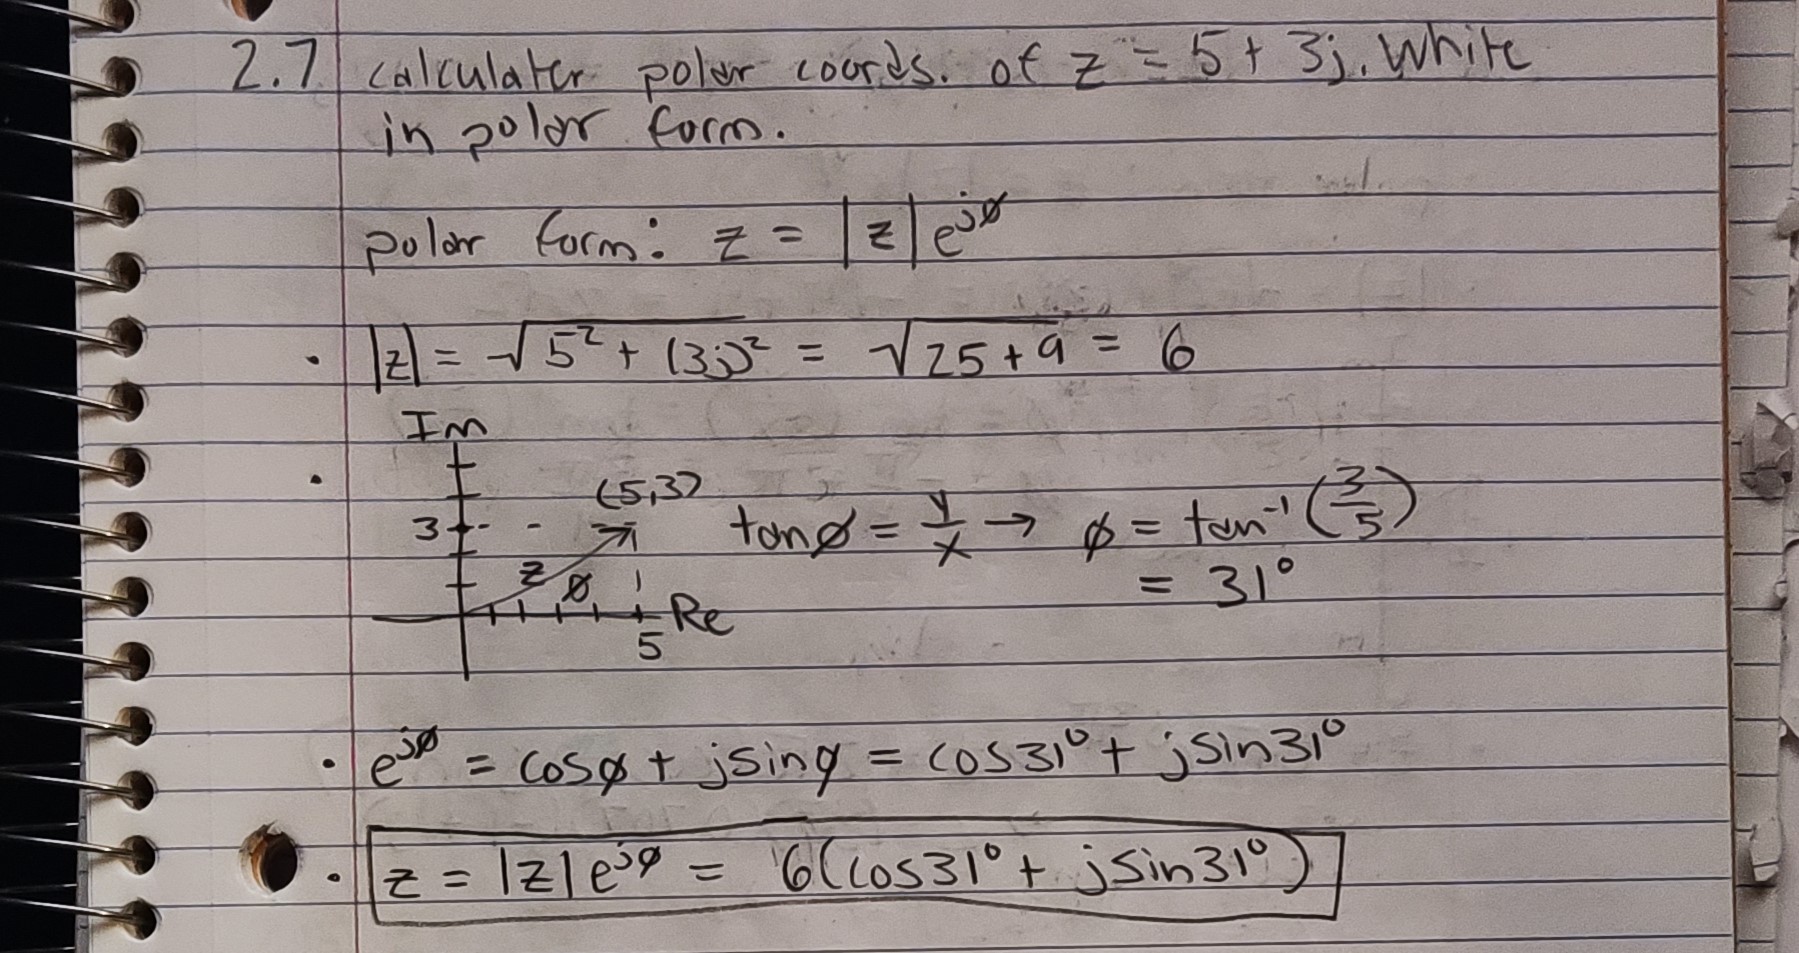 2.7 calculater polar coords. of z = 5 + 3j. Write
in polar form.
polar form: z = |z| e^{jø}
• |z| = √(5² + (3j)²) = √(25 + 9) = 6
Im
• (5,3)
3 tanø = y/x → ø = tan⁻¹(3/5)
z ø = 31°
Re
5
• e^{jø} = cosø + jsinø = cos31° + jsin31°
• z = |z| e^{jø} = 6(cos31° + jsin31°)